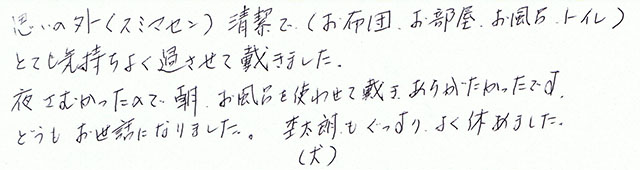 思いの外(スミマセン)清潔で(お布団、お部屋、お風呂、トイレ)
とても気持ちよく過させて戴きました。
夜さむかったので朝、お風呂を使わせて戴き、ありがたかったです。
どうもお世話になりました。 太朗もぐっすりよく休めました。
(犬)